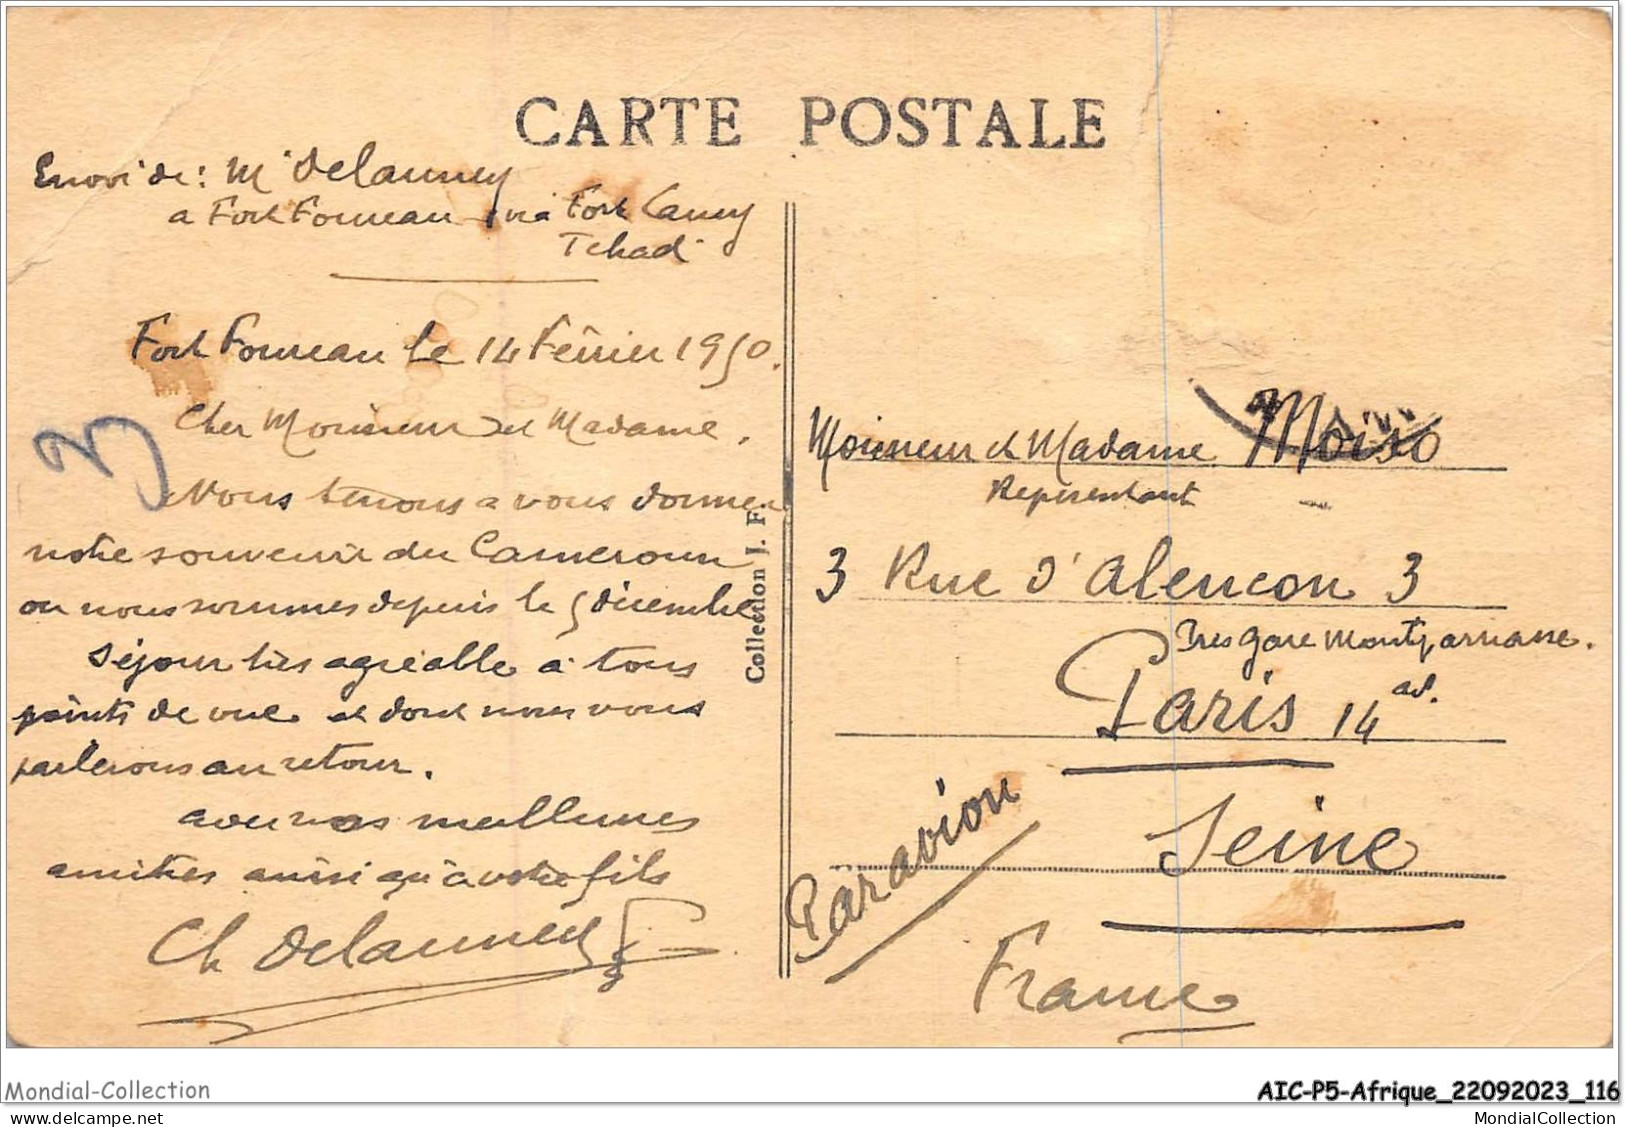 CARTE POSTALE
Envoi de : Mr Delauney
a Fort Foureau via Fort Lamy
Tchad
Fort Foureau le 14 Février 1950.
Cher Monsieur et Madame,
Nous tenons a vous donner
notre souvenir du Cameroun
ou nous sommes depuis le 5 décembre
Séjour très agréable a tous
points de vue et dont nous vous
parlerons au retour.
avec nos meilleures
amitiés ainsi qu'à votre fils
Ch Delauney
Collection J. F.
Monsieur et Madame Moiso
Representant
3 Rue d'Alencon 3
Pres gare Montparnasse.
Paris 14
Seine
Par avion
France
Mondial-Collection
AIC-P5-Afrique_22092023_116
MondialCollection